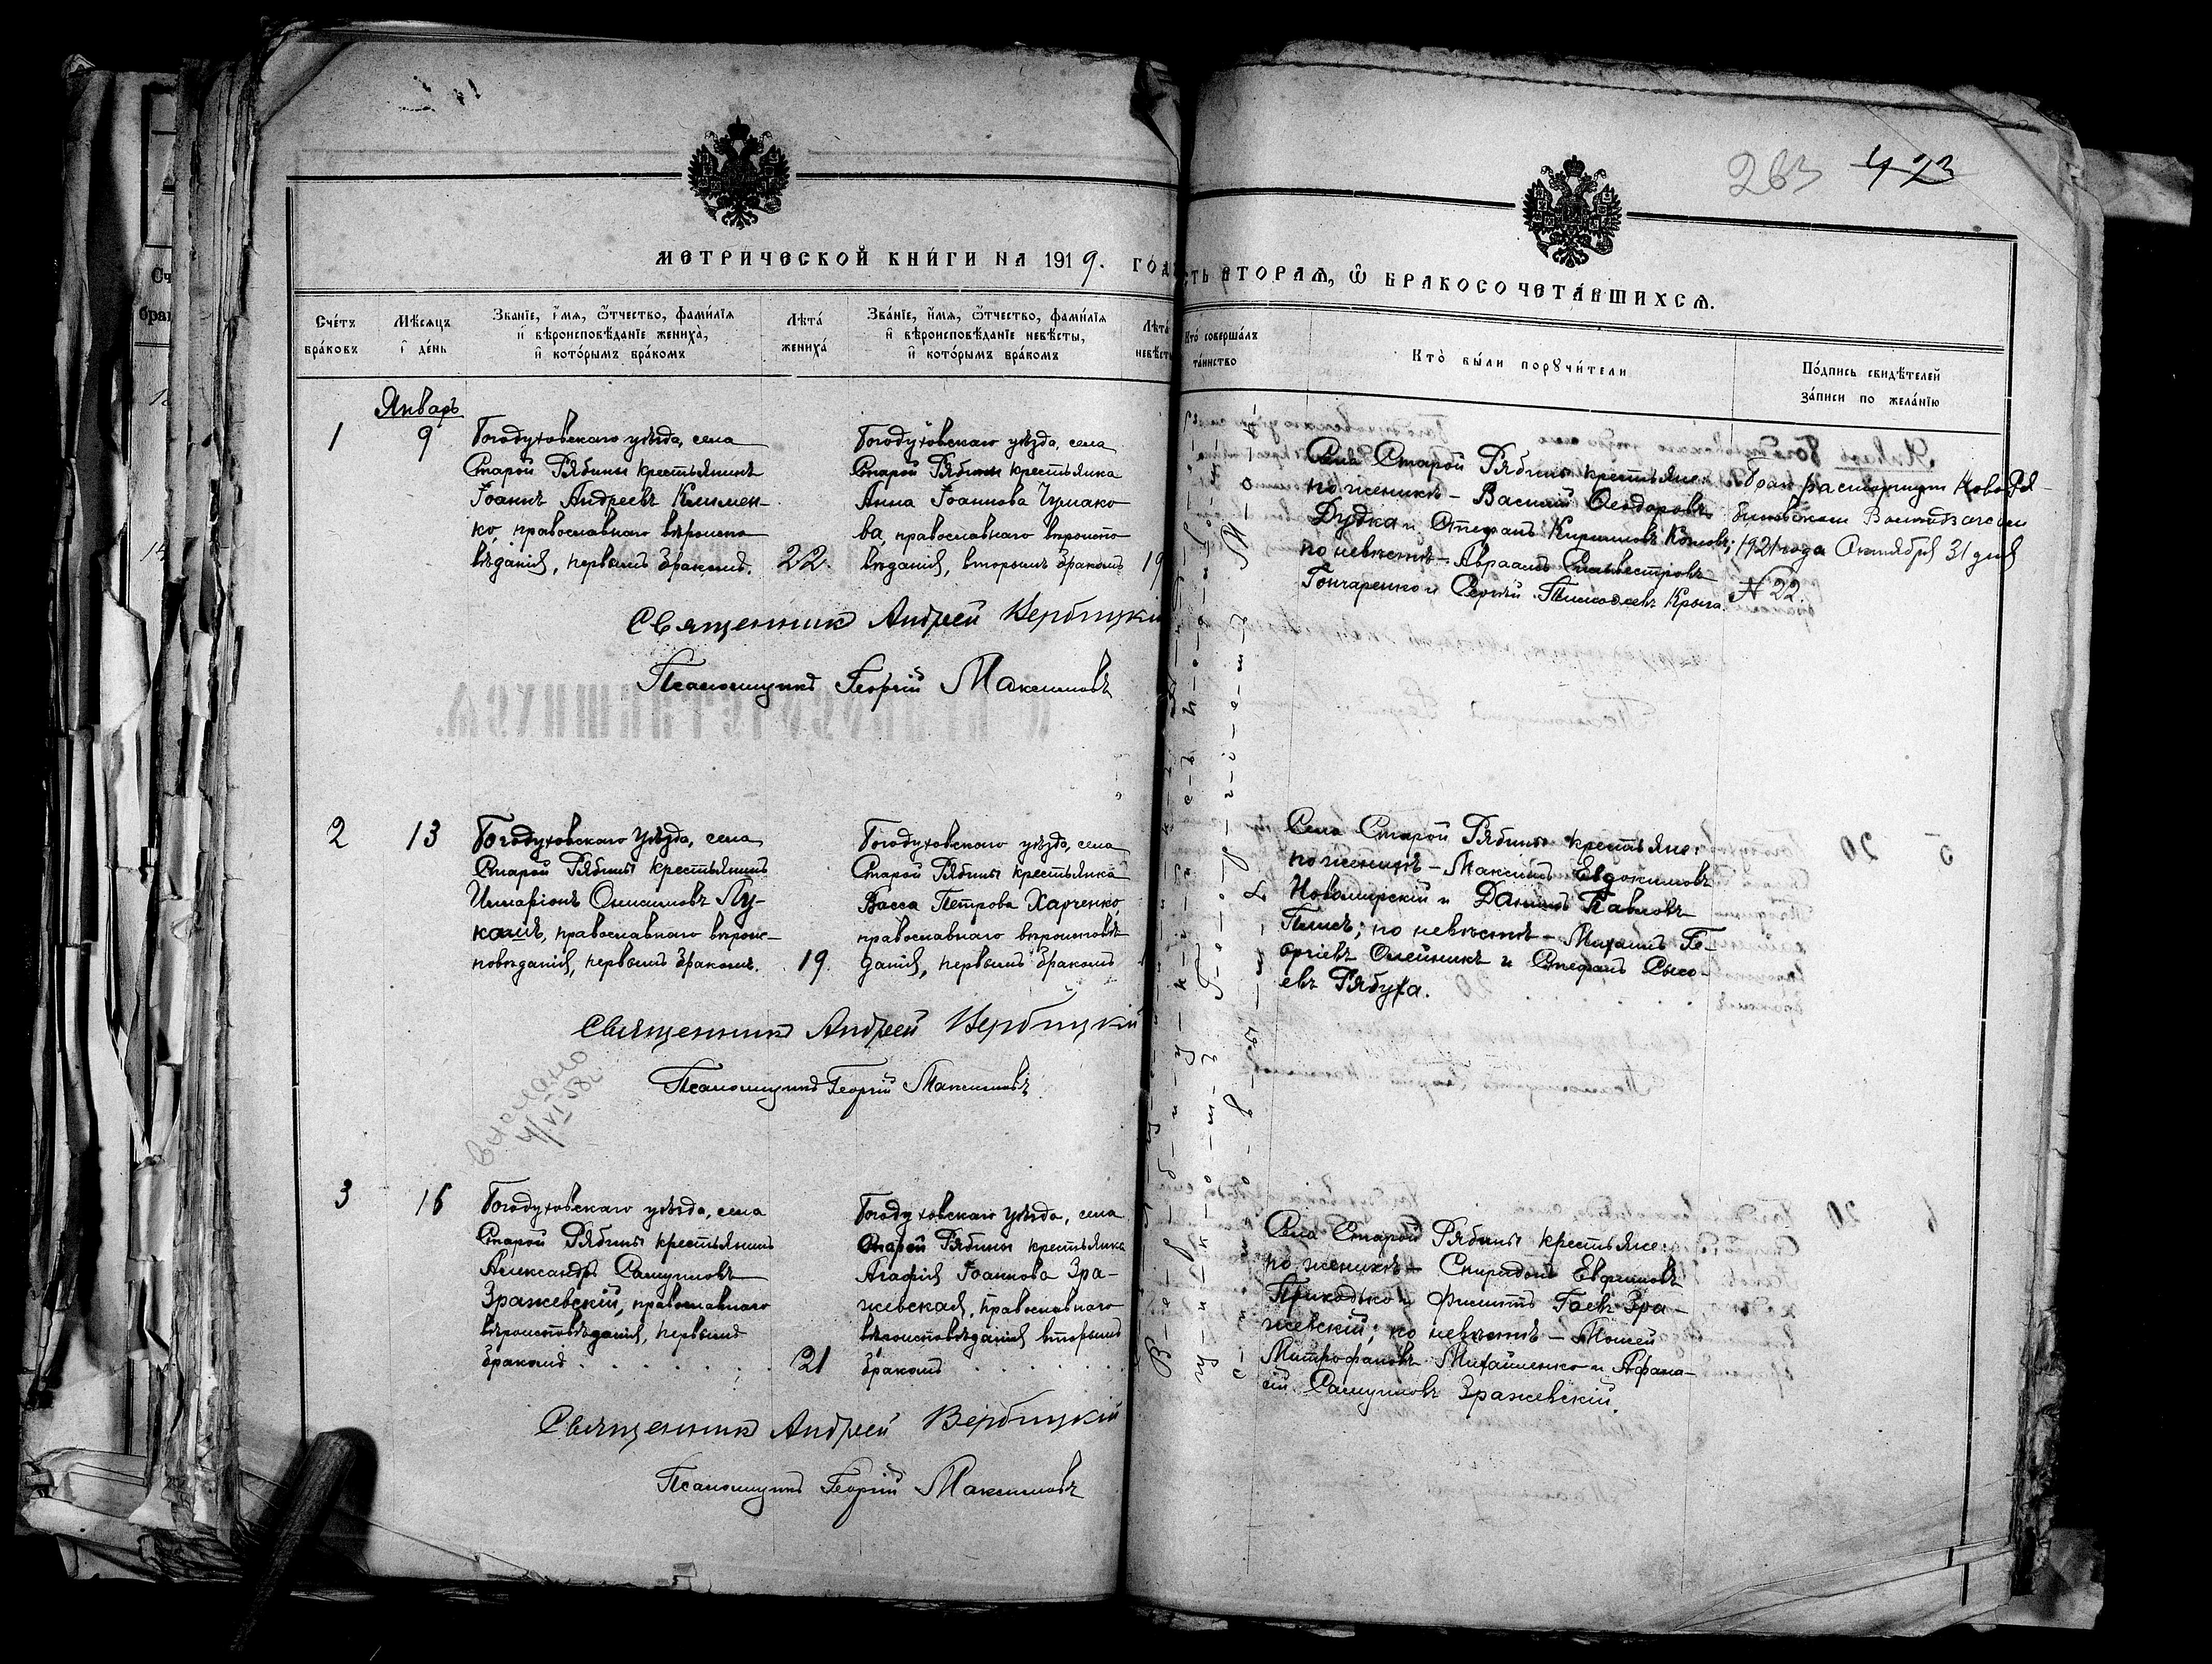 263 423
МЕТРИ́ЧЕСКОЙ КНИ́ГИ НА 1919. ГО́Д
СТЬ ВТОРАѦ, Ѡ БРАКОСОЧЕТА́ВШИХСѦ.
Сче́тъ бра́ковъ
Мѣ́сѧцъ и де́нь
Зва́нїе, и́мѧ, ѻ҆́тчество, фами́лїѧ и вѣроисповѣ́данїе жениха̀, и кото́рымъ бра́комъ
Лѣта́ жениха́
Зва́нїе, и́мѧ, ѻ҆́тчество, фами́лїѧ и вѣроисповѣ́данїе невѣ́сты, и кото́рымъ бра́комъ
Лѣта́ невѣ́сты
Кто̀ соверша́лъ та́инство
Кто̀ бы́ли порꙋчи́тели
По́дпись свидѣ́телей за́писи по жела́нїю
Январь
1
9
Богодуховскаго уѣзда, села
Старой Рябины крестьянинъ
Іоаннъ Андреевъ Климен-
ко, православнаго вѣроиспо
вѣданія, первымъ бракомъ.
22.
Богодуховскаго уѣзда, села
Старой Рябины крестьянка
Анна Іоаннова Чумако
ва, православнаго вѣроиспо
вѣданія, вторымъ бракомъ
19
Села Старой Рябины крестьяне:
по женихѣ – Василій Ѳеодоровъ
Дудка и Стефанъ Кирилловъ Котовъ;
по невѣстѣ – Авраамъ Сильвестровъ
Гончаренко и Сергѣй Тимоѳеевъ Крыга.
брак расторгнут Ново-Ря-
биновским Волиспол
1921 года Октября 31 дня
N 22.
Священникъ Андрей Вербицкій
Псаломщикъ Георгій Максимовъ
2
13
Богодуховскаго уѣзда, села
Старой Рябины крестьянинъ
Иларіонъ Онисимовъ Лу-
кашъ, православнаго вѣроис-
повѣданія, первымъ бракомъ.
19.
Богодуховскаго уѣзда, села
Старой Рябины крестьянка
Васса Петрова Харченко,
православнаго вѣроисповѣ
данія, первымъ бракомъ
Села Старой Рябины крестьяне:
по женихѣ – Максимъ Евдокимовъ
Новомирскій и Даніилъ Павловъ
по невѣстѣ – Михаилъ Ге-
оргіевъ Олейникъ и Стефанъ Сысо-
евъ Рябуха.
Священникъ Андрей Вербицкій
Псаломщикъ Георгій Максимовъ
выслано
4/VI 58
3
16
Богодуховскаго уѣзда, села
Старой Рябины крестьянинъ
Александръ Самуиловъ
Зражевскій, православнаго
вѣроисповѣданія, первымъ
бракомъ
21
Богодуховскаго уѣзда, села
Старой Рябины крестьянка
Агафія Іоаннова Зра-
жевская, православнаго
вѣроисповѣданія вторымъ
бракомъ
Села Старой Рябины крестьяне:
по женихѣ – Спиридонъ Евфимовъ
Приходько и Филиппъ Гаевъ Зра-
жевскій; по невѣстѣ – Мойсей
Митрофановъ Михайленко и Афана-
сій Самуиловъ Зражевскій.
Священникъ Андрей Вербицкій
Псаломщикъ Георгій Максимовъ